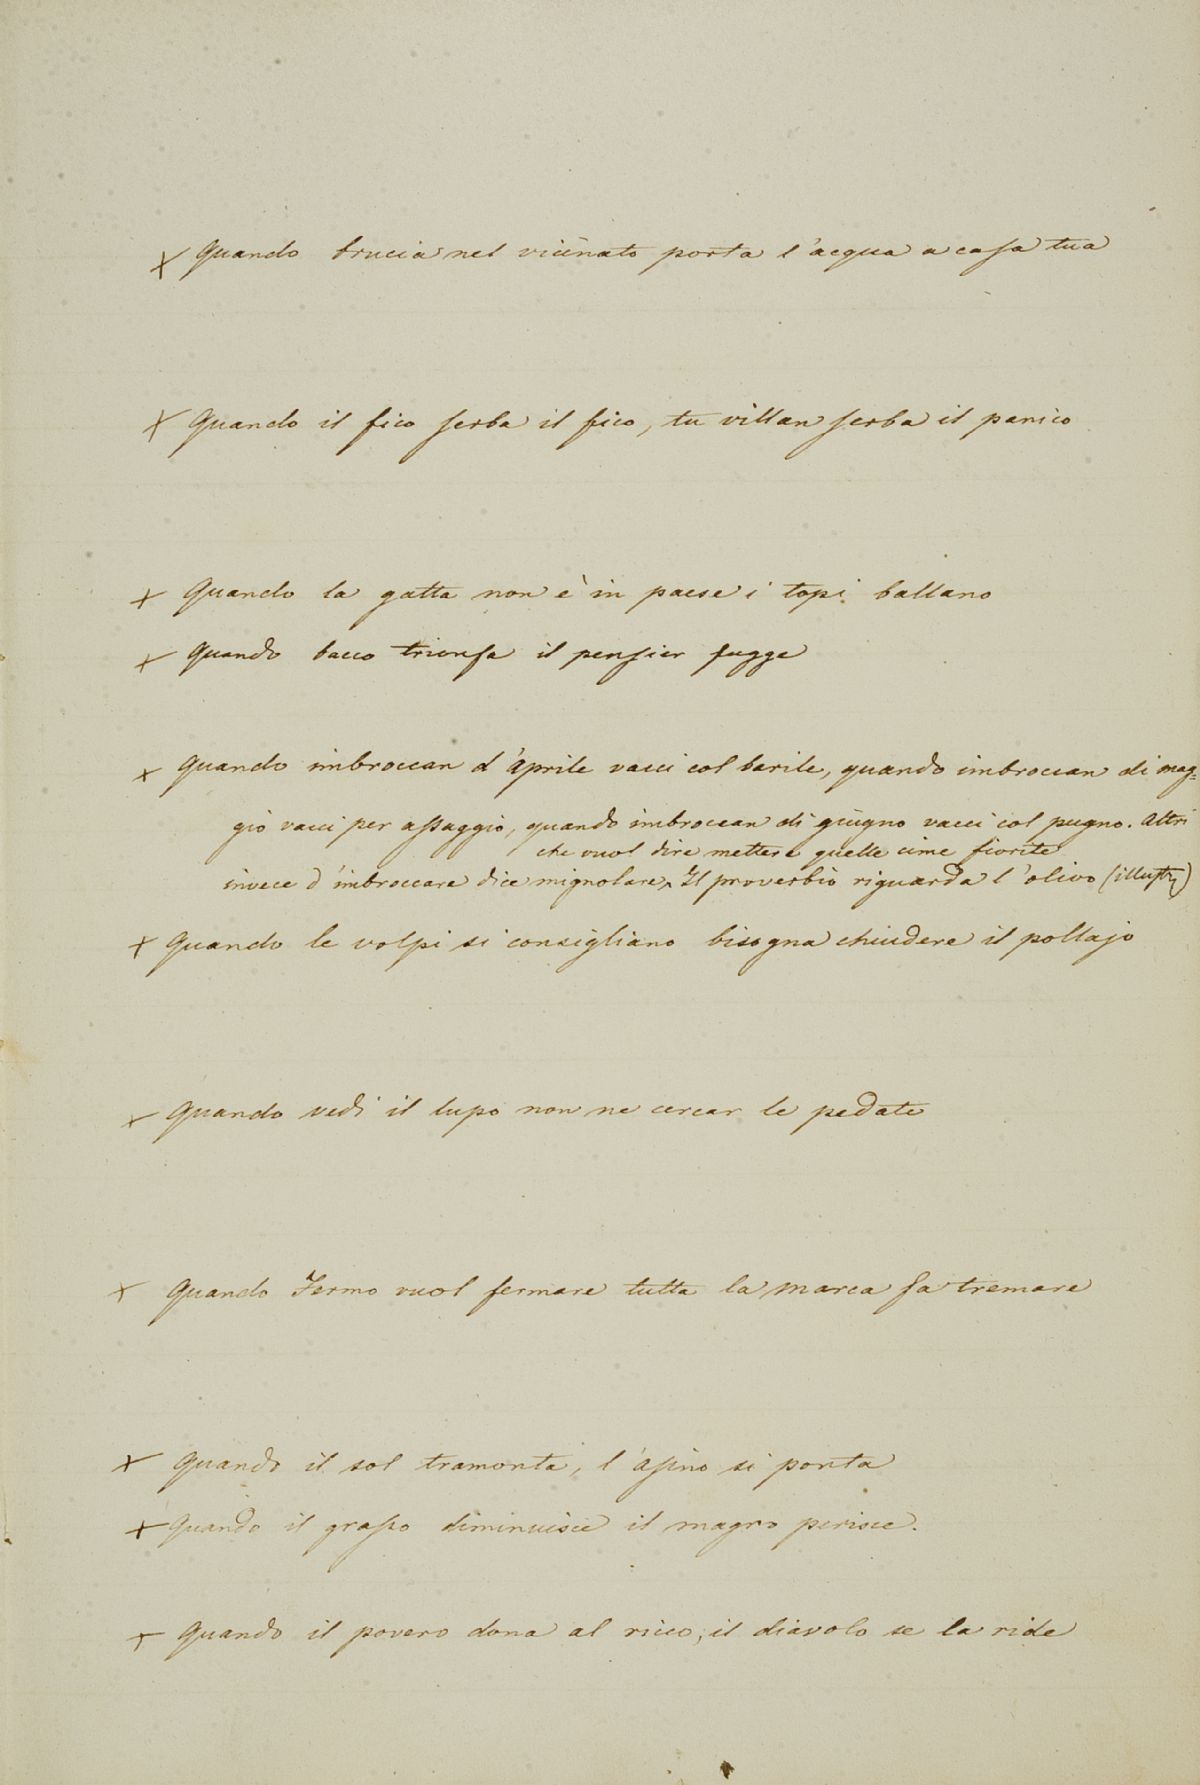 x Quando brucia nel vicinato porta l'acqua a casa tua
x Quando il fico serba il fico, tu villan serba il panico
x Quando la gatta non è in paese i topi ballano
x Quando bacco trionfa il pensier fugge
x Quando imbroccan d'aprile vacci col barile, quando imbroccan di mag=
gio vacci per assaggio, quando imbroccan di giugno vacci col pugno. Altri
che vuol dire mettere quelle cime fiorite
invece d'imbroccare dice mignolare ^ Il proverbio riguarda l'olivo (illustri)
x Quando le volpi si consigliano bisogna chiudere il pollajo
x Quando vedi il lupo non ne cercar le pedate
x Quando Fermo vuol fermare tutta la Marca fa tremare
x Quando il sol tramonta, l'asino si ponta
x Quando il grasso diminuisce il magro perisce.
x Quando il povero dona al ricco, il diavolo se la ride